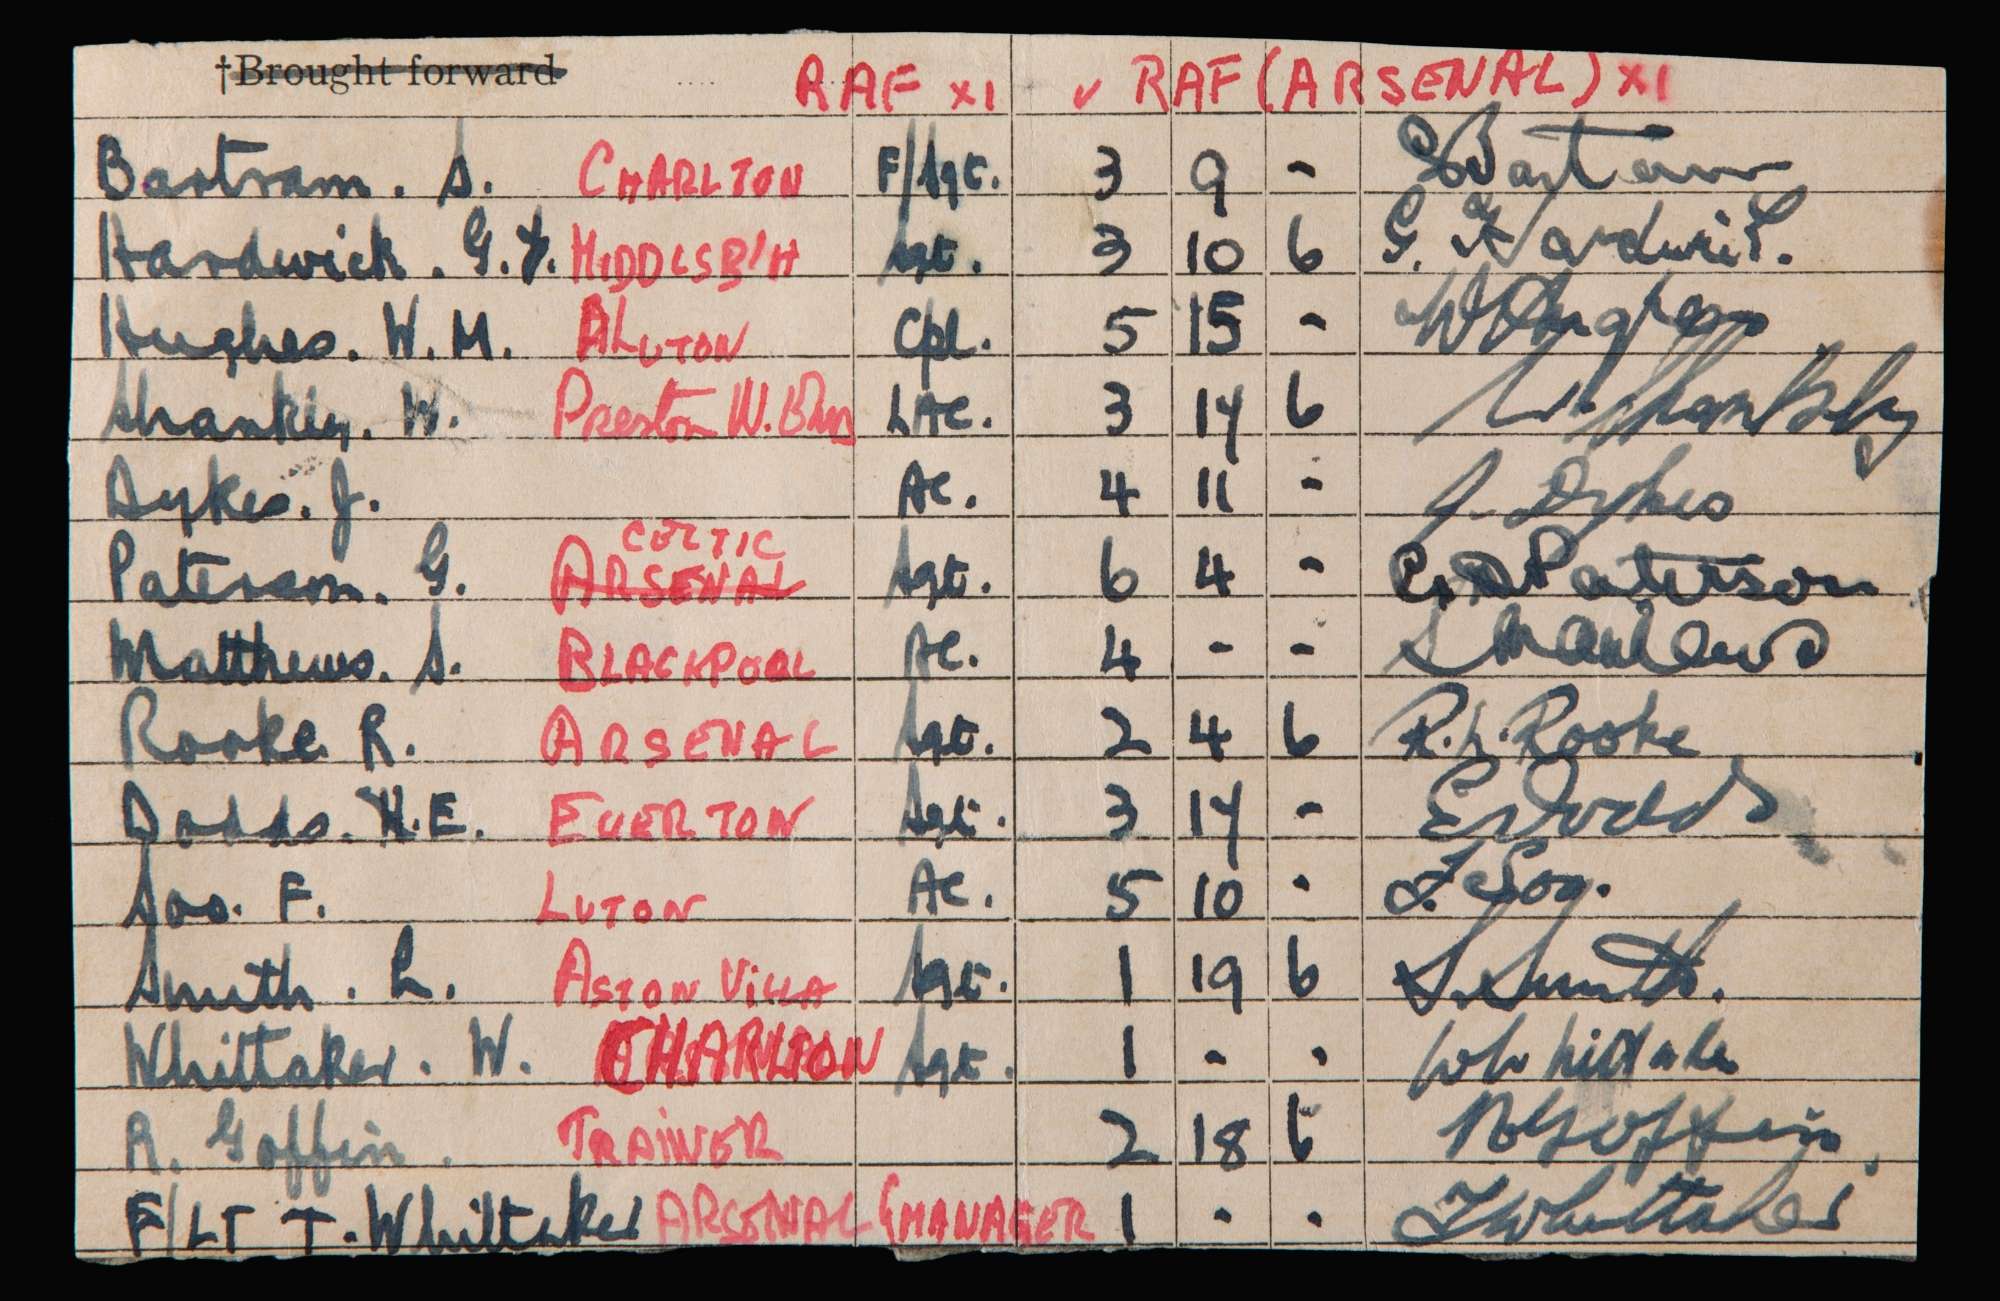 †Brought forward RAF XI ✓ RAF (ARSENAL) XI
Bartram. S. CHARLTON F/Sgt. 3 9 - S Bartram
Hardwick. G.F. MIDDLSB'H Sgt. 3 10 6 G. F. Hardwick.
Hughes. W.M. LUTON Cpl. 5 15 - W Hughes
Shankley. W. Preston LAC. 3 14 6 W. Shankly
Dykes. J. AC. 4 11 - J. Dykes
CELTIC
Paterson. G. ARSENAL Sgt. 6 4 - G. D Paterson
Matthews. S. BLACKPOOL AC. 4 - - S Matthews
Rooke R. ARSENAL Sgt. 2 4 6 R.L. Rooke
Dodds. H.E. EVERTON Sgt. 3 14 - E Dodds
Soo. F. LUTON AC. 5 10 - F. Soo.
Smith. L. ASTON VILLA Sgt. 1 19 6 L. Smith.
Whittaker. W. CHARLTON Sgt. 1 - - W Whittaker
R. Goffin. TRAINER 2 18 6 R Goffin.
F/LT T. Whittaker ARSENAL (MANAGER 1 - - T Whittaker